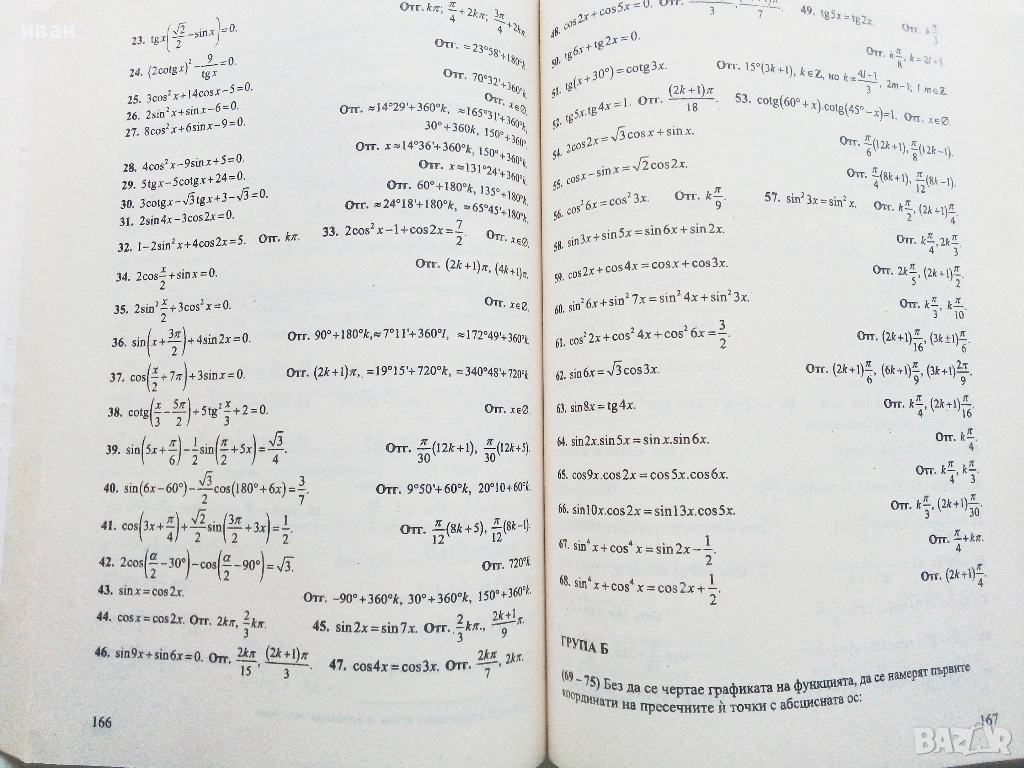 иван
Отг. kπ; π/4+2kπ; 3π/4+2kπ
23. tgx(√2/2−sinx)=0.
Отг. ≈23°58'+180°k
24. (2cotgx)²−9/tgx=0.
Отг. 70°32'+360°k
25. 3cos²x+14cosx−5=0.
Отг. x∈∅.
26. 2sin²x+sinx−6=0.
Отг. ≈14°29'+360°k, ≈165°31'+360°k,
27. 8cos²x+6sinx−9=0.
30°+360k, 150°+360°
28. 4cos²x−9sinx+5=0.
Отг. x≈14°36'+360°k, 150°+360°
29. 5tgx−5cotgx+24=0.
Отг. x≈131°24'+360°k
30. 3cotgx−√3tgx+3−√3=0.
Отг. 60°+180°k, 135°+180°k
31. 2sin4x−3cos2x=0.
Отг. ≈24°18'+180°k, ≈65°45'+180°k
32. 1−2sin²x+4cos2x=5. Отг. kπ.
33. 2cos²x−1+cos2x=7/2. Отг. x∈∅
34. 2cos x/2+sinx=0.
Отг. (2k+1)π, (4k+1)π.
35. 2sin² x/2+3cos²x=0.
Отг. x∈∅.
36. sin(x+3π/2)+4sin2x=0.
Отг. 90°+180°k,≈7°11'+360°l, ≈172°49'+360°k
37. cos(x/2+7π)+3sinx=0.
Отг. (2k+1)π, =19°15'+720°k, =340°48'+720°k
38. cotg(x/3−5π/2)+5tg² x/3+2=0.
Отг. x∈∅.
39. sin(5x+π/6)−1/2sin(π/2+5x)=√3/4.
Отг. π/30(12k+1), π/30(12k+5).
40. sin(6x−60°)−√3/2cos(180°+6x)=3/7.
Отг. 9°50'+60°k, 20°10+60°k.
41. cos(3x+π/4)+√2/2sin(3π/2+3x)=1/2.
Отг. π/12(8k+5), π/12(8k−1).
42. 2cos(α/2−30°)−cos(α/2−90°)=√3.
Отг. 720°k
43. sinx=cos2x.
Отг. −90°+360°k, 30°+360°k, 150°+360°k
44. cosx=cos2x. Отг. 2kπ, 2/3kπ.
45. sin2x=sin7x. Отг. 2/3kπ., 2k+1/9π.
46. sin9x+sin6x=0. Отг. 2kπ/15, (2k+1)π/3.
47. cos4x=cos3x. Отг. 2kπ/7, 2kπ.
166
48. cos2x+cos5x=0. Отг.
49. tg5x=tg2x.
Отг. kπ/3
50. tg6x+tg2x=0.
Отг. kπ/8, k=2l+1.
51. tg(x+30°)=cotg3x.
Отг. 15°(3k+1), k∈Z, но k≠4l−1/3, 2m−1; l m∈Z
52. tg5x.tg4x=1. Отг. (2k+1)π/18.
53. cotg(60°+x).cotg(45°−x)=1. Отг. x∈∅
54. 2cos2x=√3cosx+sinx.
Отг. π/6(12k+1),π/8(12k−1).
55. cosx−sinx=√2cos2x.
Отг. π/4(8k+1), π/12(8k−1).
56. cos²6x=cos²3x. Отг. kπ/9.
57. sin²3x=sin²x. Отг. kπ/2,(2k+1)π/4
58. sin3x+sin5x=sin6x+sin2x.
Отг. kπ/4,2kπ/3
59. cos2x+cos4x=cosx+cos3x.
Отг. 2kπ/5,(2k+1)π/2
60. sin²6x+sin²7x=sin²4x+sin²3x.
Отг. kπ/3, kπ/10.
61. cos²2x+cos²4x+cos²6x=3/2.
Отг. (2k+1)π/16,(3k±1)π/6
62. sin6x=√3cos3x.
Отг. (2k+1)π/6,(6k+1)π/9,(3k+1)2π/9
63. sin8x=tg4x.
Отг. kπ/4,(2k+1)π/16
64. sin2x.sin5x=sinx.sin6x.
Отг. kπ/4
65. cos9x.cos2x=cos5x.cos6x.
Отг. kπ/4, kπ/3.
66. sin10x.cos2x=sin13x.cos5x.
Отг. kπ/3,(2k+1)π/30
67. sin⁴x+cos⁴x=sin2x−1/2
Отг. π/4+kπ.
68. sin⁴x+cos⁴x=cos2x+1/2
Отг. (2k+1)π/4.
ГРУПА Б
(69 – 75) Без да се чертае графиката на функцията, да се намерят първите
координати на пресечните ѝ точки с абсцисната ос:
167
BAZAR